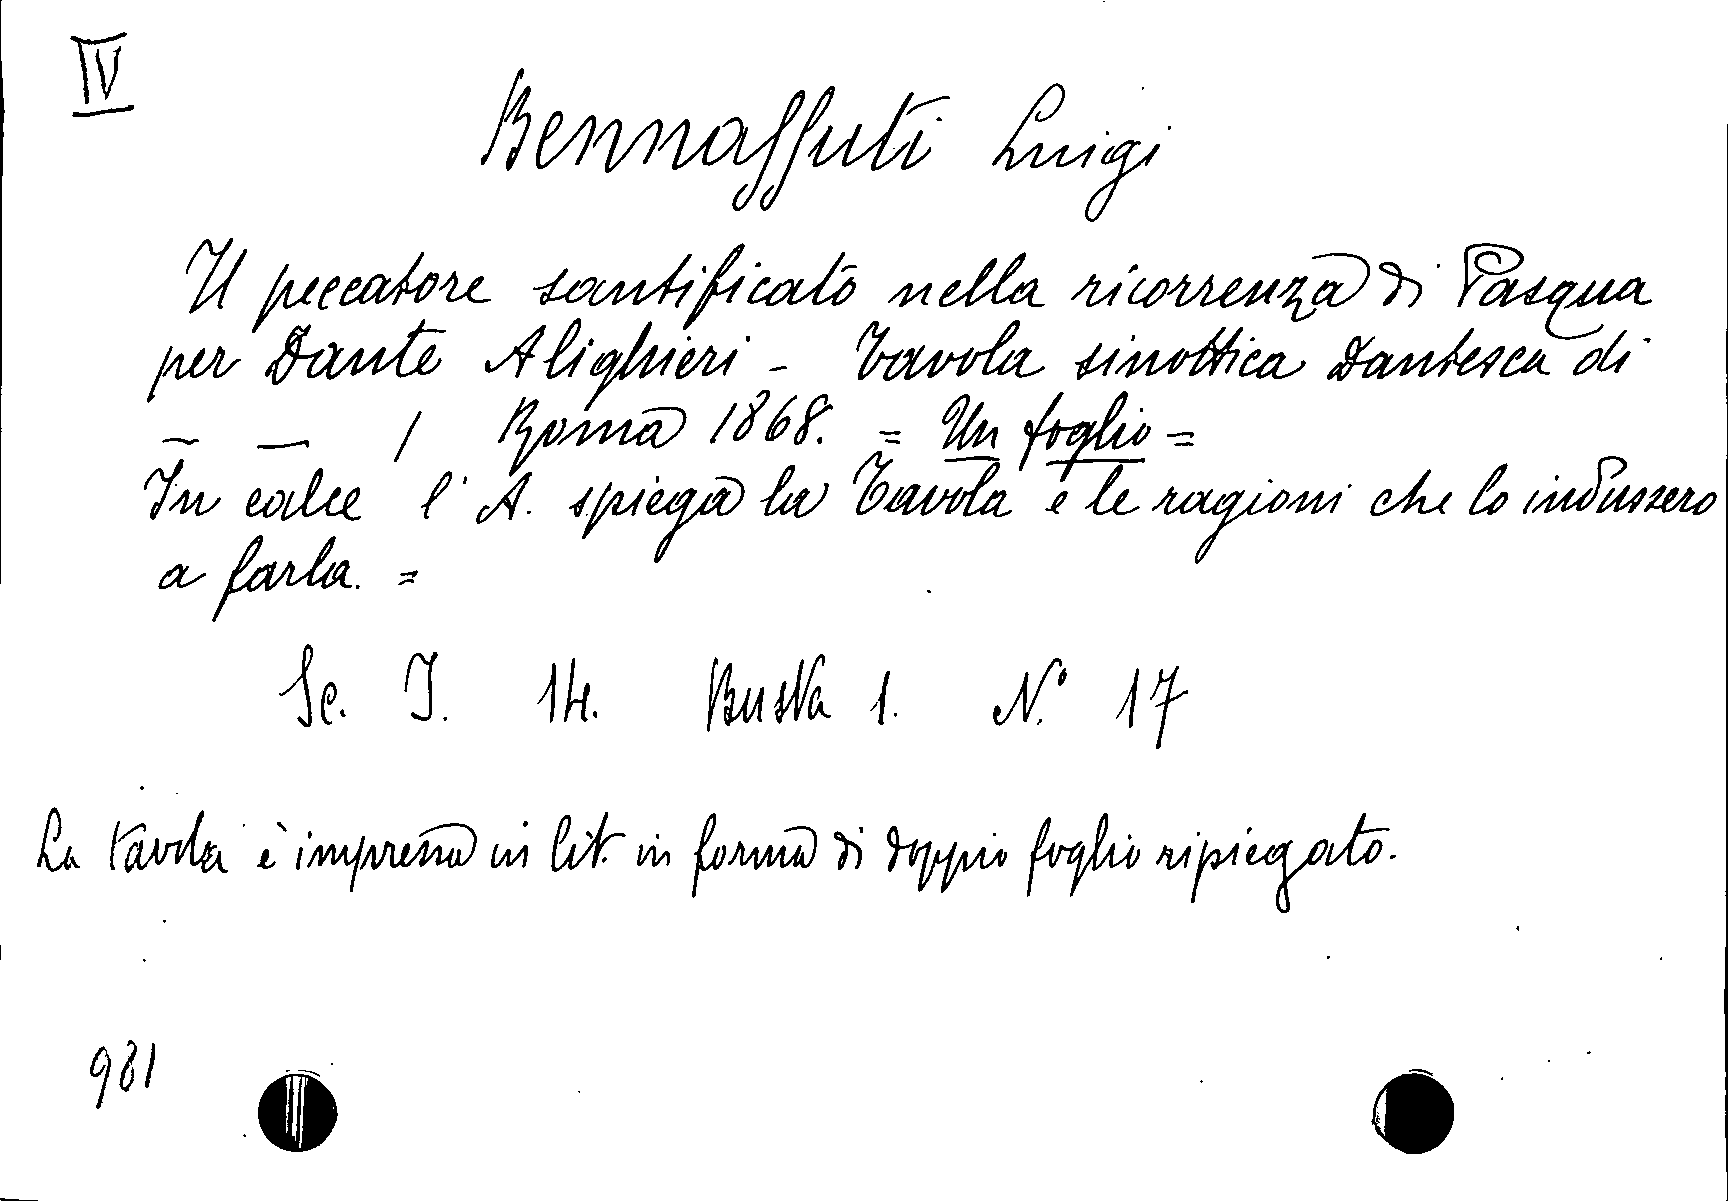 IV
Bennassuti Luigi
Il peccatore santificato nella ricorrenza di Pasqua
per Dante Alighieri - Tavola sinottica Dantesca di
— — / Roma 1868. = Un foglio =
In calce l'A. spiega la Tavola e le ragioni che lo indussero
a farla. =
Sc. I. 14. Busta 1. N.° 17
La tavola è impressa in lit. in forma di doppio foglio ripiegato.
981